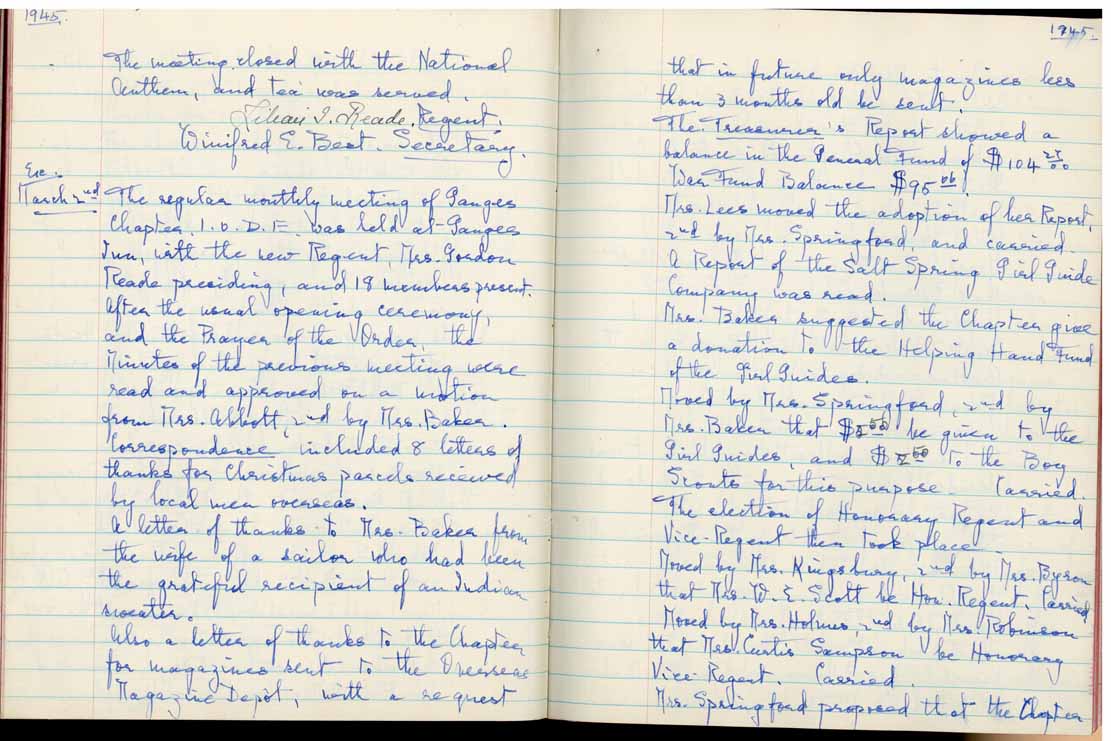 1945.
The meeting closed with the National
Anthem, and tea was served.
Lilian I. Reade. Regent.
Winifred E. Best. Secretary.
March 2nd
The regular monthly meeting of Ganges
Chapter, I.O.D.E. was held at Ganges
Inn, with the new Regent, Mrs. Gordon
Reade presiding, and 18 members present.
After the usual opening ceremony,
and the Prayer of the Order, the
Minutes of the previous meeting were
read and approved on a motion
from Mrs. Abbott, 2nd by Mrs. Baker.
Correspondence included 8 letters of
thanks for Christmas parcels received
by local men overseas.
A letter of thanks to Mrs. Baker from
the wife of a sailor who had been
the grateful recipient of an Indian
sweater.
Also a letter of thanks to the Chapter
for magazines sent to the Overseas
Magazine Depot, with a request
1945.
that in future only magazines less
than 3 months old be sent.
The Treasurer's Report showed a
balance in the General Fund of $104
War Fund Balance $95
Mrs. Lees moved the adoption of her Report,
2nd by Mrs. Springford, and carried.
A Report of the Salt Spring Girl Guide
Company was read.
Mrs. Baker suggested the Chapter give
a donation to the Helping Hand Fund
of the Girl Guides.
Moved by Mrs. Springford, 2nd by
Mrs. Baker that be given to the
Girl Guides, and to the Boy
Scouts for this purpose. Carried.
The election of Honorary Regent and
Vice-Regent then took place.
Moved by Mrs. Kingsbury, 2nd by Mrs. Byron
that Mrs. W. E. Scott be Hon. Regent. Carried
Moved by Mrs. Holmes, 2nd by Mrs. Robinson
that Mrs. Curtis Sampson be Honorary
Vice-Regent. Carried.
Mrs. Springford proposed that the Chapter